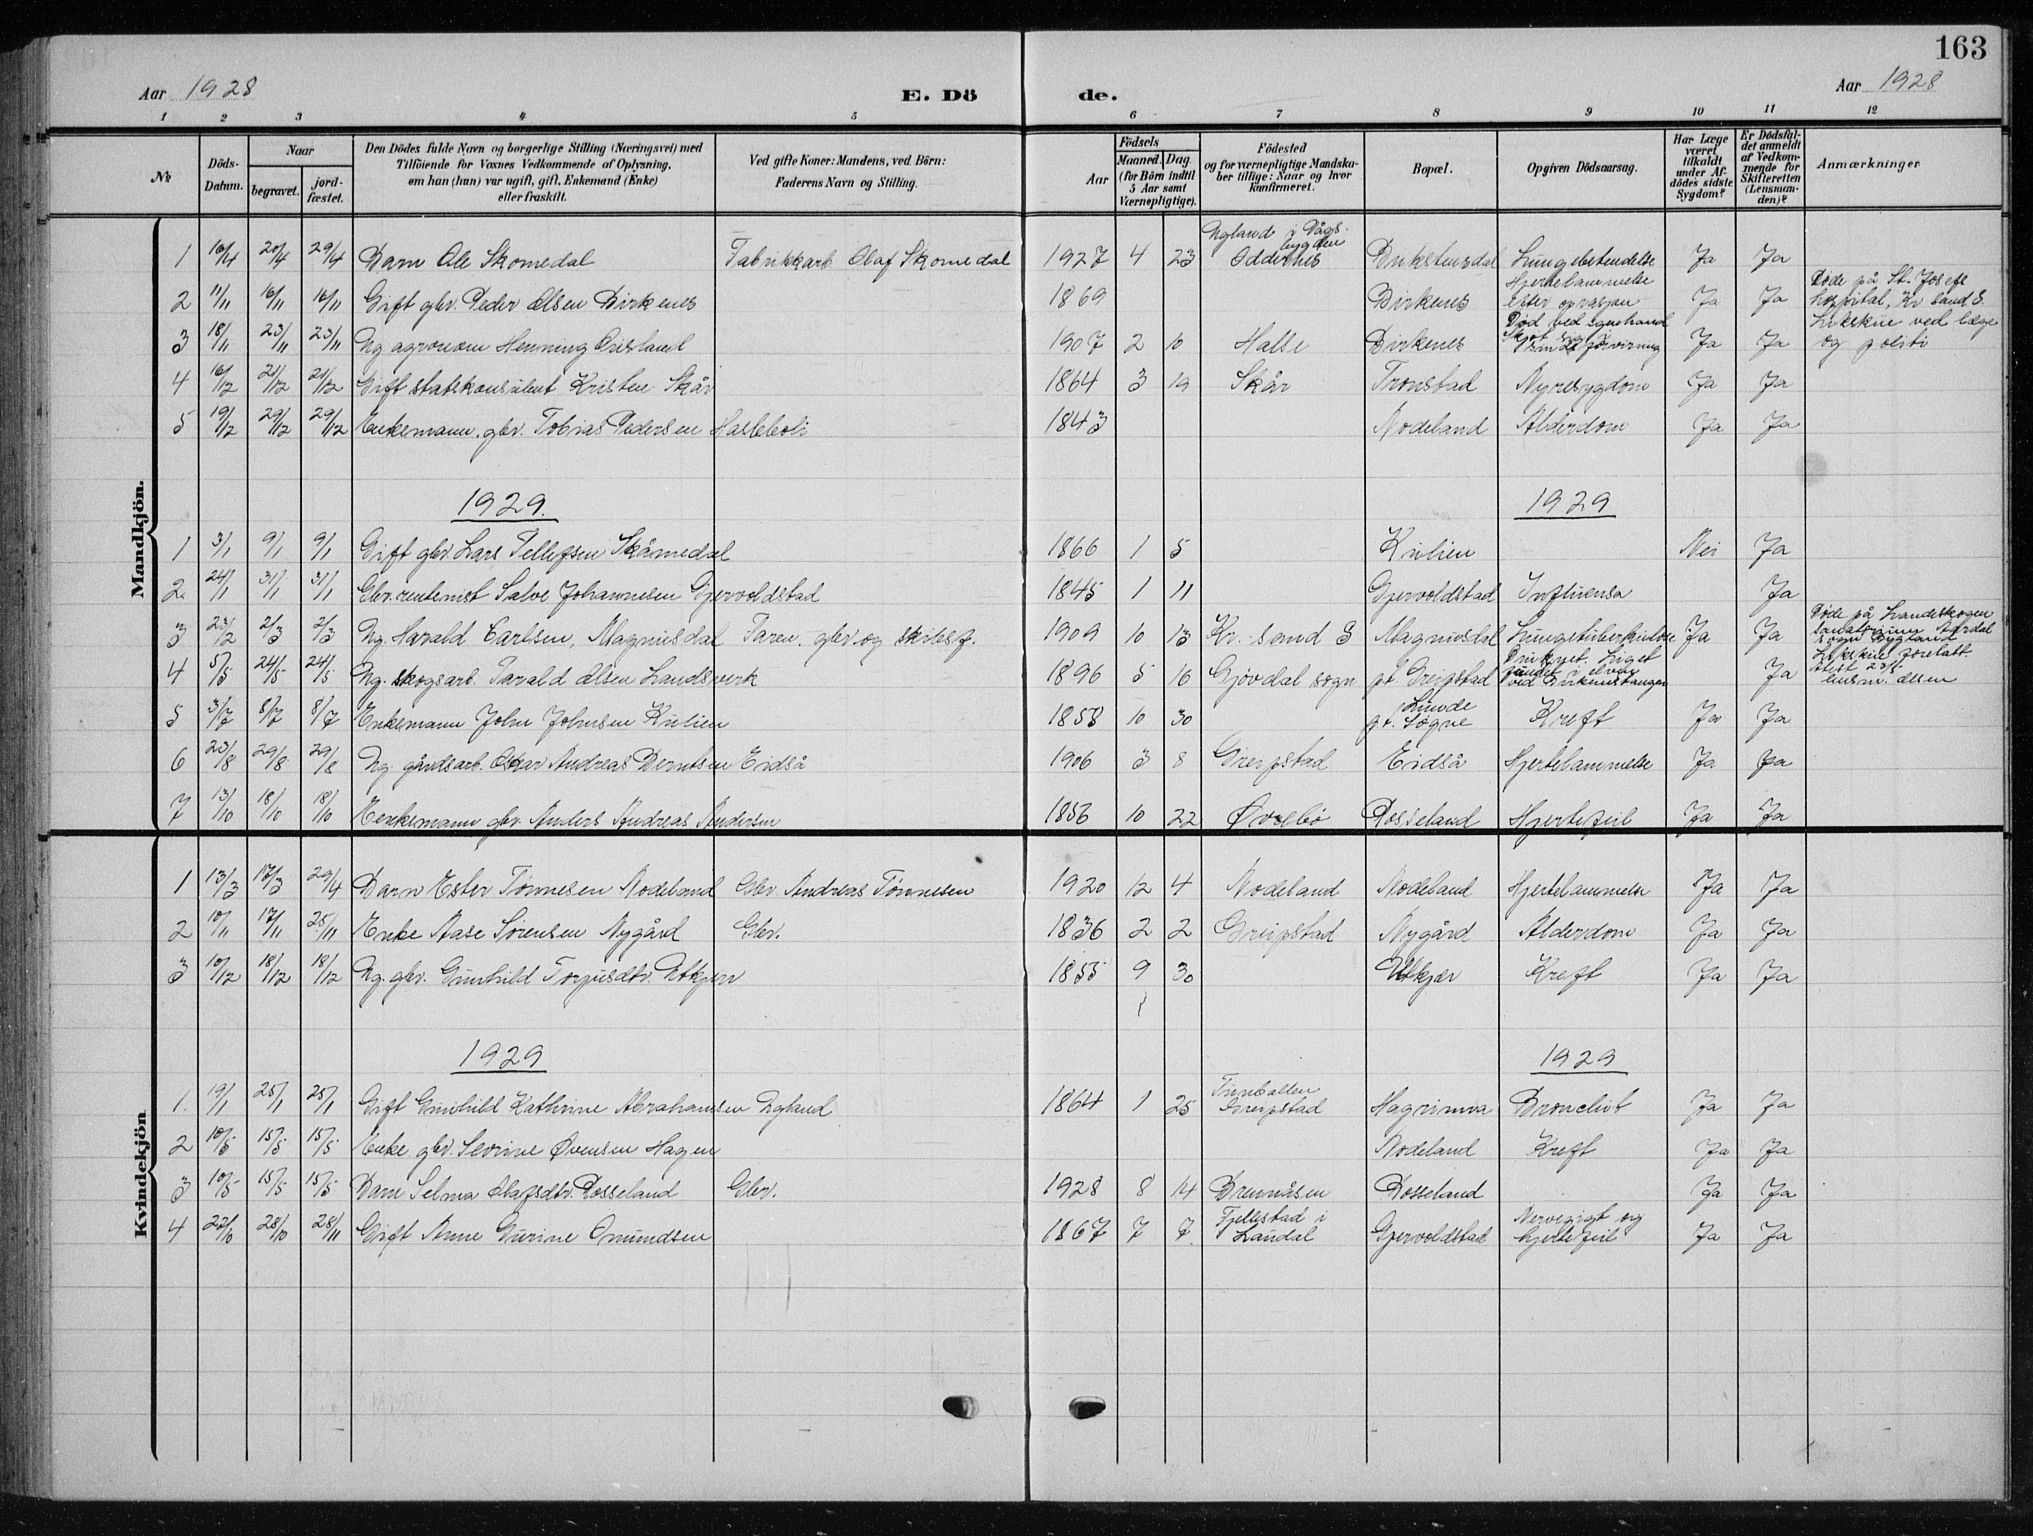 163
Aar 1928 E. Dö de. Aar 1928
1 2 3 4 5 6 7 8 9 10 11 12
№ Döds-Datum. Naar begravet. jord-fæstet. Den Dödes fulde Navn og borgerlige Stilling (Næringsvei) med Tilföiende for Voxnes Vedkommende af Oplysning, om han (hun) var ugift, gift, Enkemand (Enke) eller fraskilt. Ved gifte Koner: Mandens, ved Börn: Faderens Navn og Stilling. Födsels Aar Maaned. Dag. (for Börn indtil 5 Aar samt Værnepligtige). Födested og for værnepligtige Mandskaber tillige: Naar og hvor konfirmeret. Bopæl. Opgiven Dödsaarsag. Har Læge været tilkaldt under Afdödes sidste Sygdom? Er Dödsfaldet anmeldt af Vedkommende for Skifteretten (Lensmanden)? Anmærkninger
Mandkjön.
1 16/4 20/4 29/4 Barn Ole Skomedal Fabrikkarb. Olaf Skomedal 1927 4 23 Ugland i Vågsbygden Oddernes Lungebetendelse Ja Ja
2 11/11 16/11 16/11 Gift gbr. Peder Olsen Birkenes 1869 Birkenes Hjertelammelse efter oprasjon Ja Ja Døde på St. Josefs hospital, Kr sand S.
3 18/11 23/11 23/11 Ug agronom Henning 1907 2 10 Halse Birkenes Død ved egenhand Skot sig i sindsforvirring Ja Ja Likskue ved læge og politi
4 16/12 21/12 21/12 Gift statskonsulent Kristen Skår 1864 3 19 Skår Tronstad Nyresygdom Ja Ja
5 19/12 29/12 29/12 Enkemann. gbr. Tobias Pedersen 1843 Nodeland Alderdom Ja Ja
1929. 1929
1 3/1 9/1 9/1 Gift gbr. Lars Tellefsen Skåmedal 1866 1 5 Kulien Nei Ja
2. 24/1 31/1 31/1 Gbr. rentenist Salve Johannesen Gjervoldstad 1845 1 11 Gjervoldstad Influensa Ja
3 23/2 2/3 2/3 Ug. Harald Carlsen, Magnusdal Faren. gbr. og 1909 10 13 Kr.-sand S Magnusdal Lungetuberkulose Ja Ja Døde på Landeskogen sanatorium Aardal sogn Bygland
4 5/5 24/5 24/5 Ug. skogsarb. Tarald Olsen Landsverk 1896 5 16 Gjövdal sogn pt. Greipstad Druknet. Liget fundet i elven ved Birkenestangen Ja Likskue foretatt. Attest 23/5. lensm. Olsen
5 3/7 8/7 8/7 Enkemann John Johnsen Kulien 1858 10 30 pt. Lunde Søgne Kreft Ja Ja
6 23/8 29/8 29/8 Ug. gårdsarb. Oskar Andreas Berntsen Eidså 1906 3 8 Greipstad Eidså Hjertelammelse Ja Ja
7 13/10 18/10 18/10 Enkemann gbr. Anders Andreas Andersen 1856 10 22 Øvrebø Rosseland Hjertefeil Ja Ja
Kvindekjön
1 13/3 17/3 29/4 Barn Ester Tönnesen Nodeland Gbr. Andreas Tönnesen 1920 12 4 Nodeland Nodeland Hjertelammelse Ja Ja
2 10/11 17/11 25/11 Enke Aase Sørensen Nygård Gbr. 1836 2 2 Greipstad Nygård Alderdom Ja Ja
3 10/12 18/12 18/12 Ug. gbr. Gunhild Torjusdtr. Utkjær 1855 9 30 Utkjær Kreft Ja Ja
1929 1929
1. 19/1 25/1 25/1 Gift Gunhild Kathrine Abrahamsen Ugland 1864 1 25 Greipstad Bronchit Ja Ja
2 10/5 15/5 15/5 Enke gbr. Sevrine Øvensen Hagen Nodeland Kreft Ja Ja
3 10/5 15/5 15/5 Barn Selma Olafsdtr. Rosseland Gbr. 1928 8 14 Brennåsen Rosseland Ja Ja
4 22/10 28/10 28/11 Gift Anne Gurine Omundsen 1867 7 7. Fjellestad i Laudal Gjervoldstad Nervegigt og hjertefeil Ja Ja